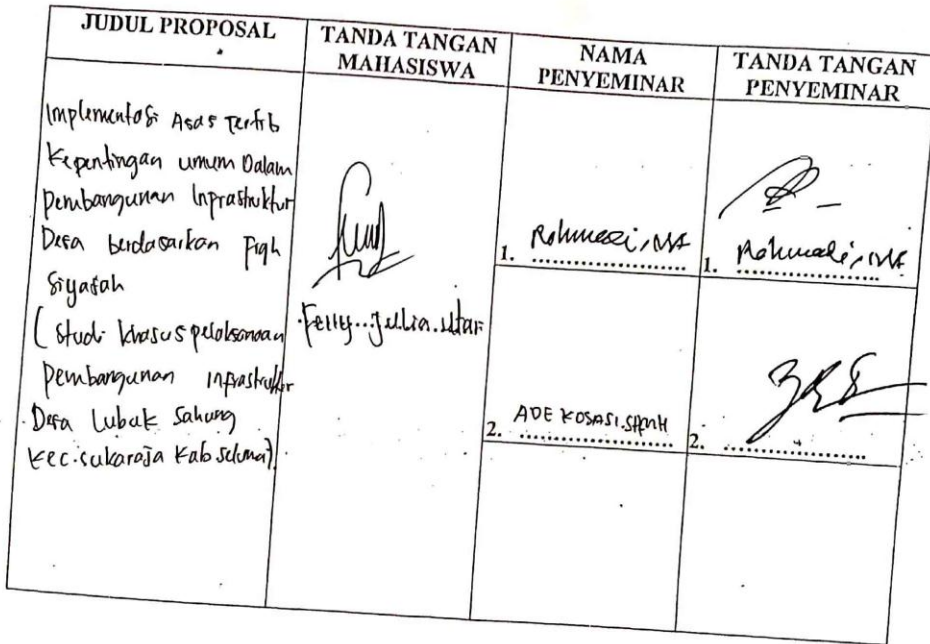 JUDUL PROPOSAL
TANDA TANGAN
MAHASISWA
NAMA
PENYEMINAR
TANDA TANGAN
PENYEMINAR
Implementasi Asas Tertib
Kepentingan umum Dalam
pembangunan Inprastruktur
Desa berdasarkan Fiqh
Siyasah
( Studi khasus pelaksanaan
pembangunan inprastruktur
Desa Lubuk Sahung
Kec.sukaraja Kab seluma).
Ferry...Julia.utari
1. Rohmadi, MA
1. Rohmadi, MA
2. ADE KOSASI.SH.MH
2.